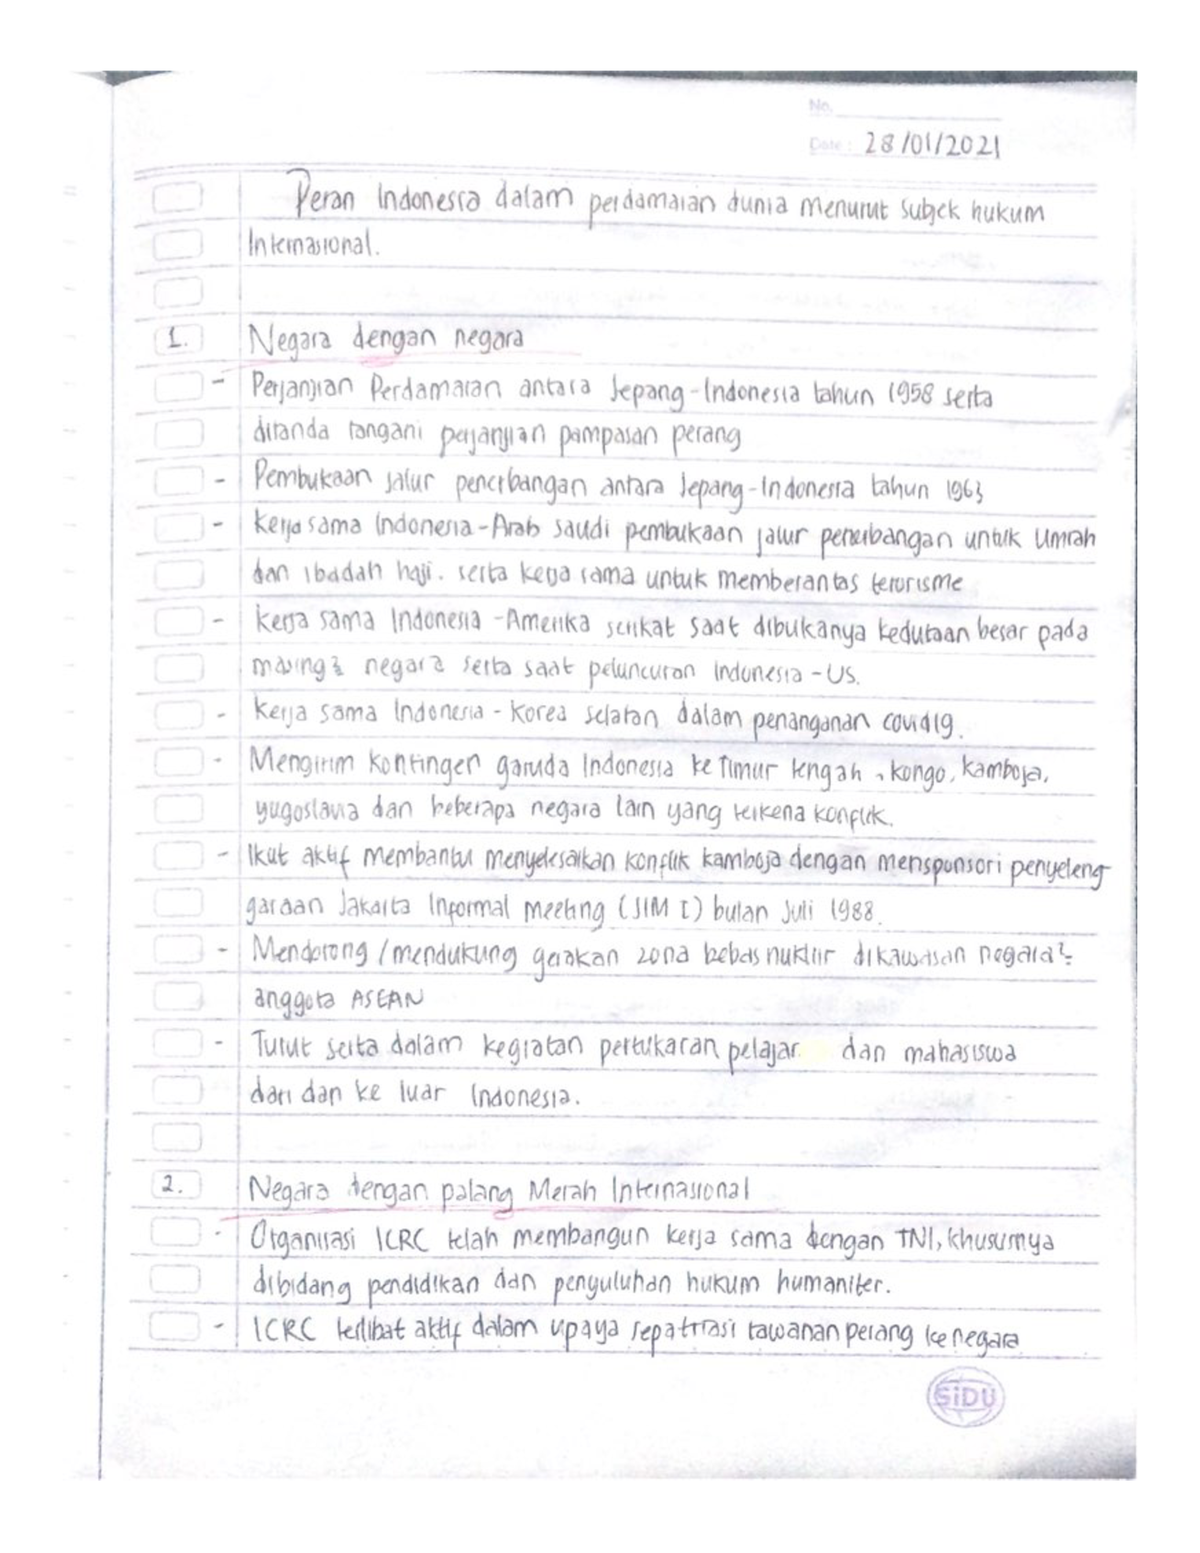 No.
Date : 28/01/2021
Peran Indonesia dalam perdamaian dunia menurut subjek hukum
Internasional.
1. Negara dengan negara
- Perjanjian Perdamaian antara Jepang-Indonesia tahun 1958 serta
ditanda tangani perjanjian pampasan perang
- Pembukaan jalur penerbangan antara Jepang-Indonesia tahun 1963
- Kerja sama Indonesia-Arab saudi pembukaan jalur penerbangan untuk Umrah
dan ibadah haji. serta kerja sama untuk memberantas terorisme
- Kerja sama Indonesia -Amerika serikat saat dibukanya kedutaan besar pada
masing2 negara serta saat peluncuran Indonesia-US.
- Kerja sama Indonesia - Korea selatan dalam penanganan covid19.
- Mengirim kontingen garuda Indonesia ke Timur tengah, kongo, kamboja,
yugoslavia dan beberapa negara lain yang terkena konflik.
- Ikut aktif membantu menyelesaikan konflik kamboja dengan mensponsori penyeleng
garaan Jakarta Informal meeting (JIM I) bulan Juli 1988.
- Mendorong /mendukung gerakan zona bebas nuklir dikawasan negara2
anggota ASEAN
- Turut serta dalam kegiatan pertukaran pelajar dan mahasiswa
dari dan ke luar Indonesia.
2. Negara dengan palang Merah Internasional
- Organisasi ICRC telah membangun kerja sama dengan TNI, khususnya
dibidang pendidikan dan penyuluhan hukum humaniter.
- ICRC terlibat aktif dalam upaya repatriasi tawanan perang ke negara
SiDU